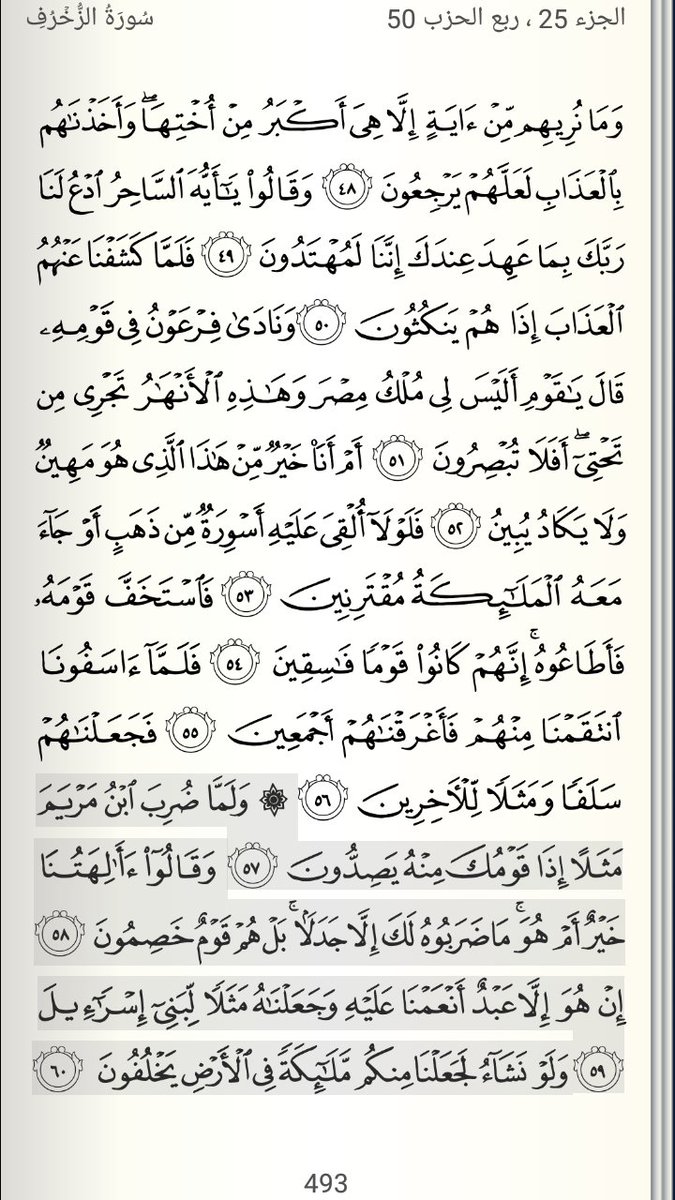 الجزء 25 ، ربع الحزب 50
سُورَةُ الزُّخْرُفِ
وَمَا نُرِيهِم مِّنْ ءَايَةٍ إِلَّا هِىَ أَكْبَرُ مِنْ أُخْتِهَا ۖ وَأَخَذْنَـٰهُم
بِٱلْعَذَابِ لَعَلَّهُمْ يَرْجِعُونَ ٤٨ وَقَالُوا۟ يَـٰٓأَيُّهَ ٱلسَّاحِرُ ٱدْعُ لَنَا
رَبَّكَ بِمَا عَهِدَ عِندَكَ إِنَّنَا لَمُهْتَدُونَ ٤٩ فَلَمَّا كَشَفْنَا عَنْهُمُ
ٱلْعَذَابَ إِذَا هُمْ يَنكُثُونَ ٥٠ وَنَادَىٰ فِرْعَوْنُ فِى قَوْمِهِۦ
قَالَ يَـٰقَوْمِ أَلَيْسَ لِى مُلْكُ مِصْرَ وَهَـٰذِهِ ٱلْأَنْهَـٰرُ تَجْرِى مِن
تَحْتِىٓ ۖ أَفَلَا تُبْصِرُونَ ٥١ أَمْ أَنَا۠ خَيْرٌ مِّنْ هَـٰذَا ٱلَّذِى هُوَ مَهِينٌ
وَلَا يَكَادُ يُبِينُ ٥٢ فَلَوْلَآ أُلْقِىَ عَلَيْهِ أَسْوِرَةٌ مِّن ذَهَبٍ أَوْ جَآءَ
مَعَهُ ٱلْمَلَـٰٓئِكَةُ مُقْتَرِنِينَ ٥٣ فَٱسْتَخَفَّ قَوْمَهُۥ
فَأَطَاعُوهُ ۚ إِنَّهُمْ كَانُوا۟ قَوْمًا فَـٰسِقِينَ ٥٤ فَلَمَّآ ءَاسَفُونَا
ٱنتَقَمْنَا مِنْهُمْ فَأَغْرَقْنَـٰهُمْ أَجْمَعِينَ ٥٥ فَجَعَلْنَـٰهُمْ
سَلَفًا وَمَثَلًا لِّلْـَٔاخِرِينَ ٥٦ ۞ وَلَمَّا ضُرِبَ ٱبْنُ مَرْيَمَ
مَثَلًا إِذَا قَوْمُكَ مِنْهُ يَصِدُّونَ ٥٧ وَقَالُوٓا۟ ءَأَـٰلِهَتُنَا
خَيْرٌ أَمْ هُوَ ۚ مَا ضَرَبُوهُ لَكَ إِلَّا جَدَلًۢا ۚ بَلْ هُمْ قَوْمٌ خَصِمُونَ ٥٨
إِنْ هُوَ إِلَّا عَبْدٌ أَنْعَمْنَا عَلَيْهِ وَجَعَلْنَـٰهُ مَثَلًا لِّبَنِىٓ إِسْرَٰٓءِيلَ
٥٩ وَلَوْ نَشَآءُ لَجَعَلْنَا مِنكُم مَّلَـٰٓئِكَةً فِى ٱلْأَرْضِ يَخْلُفُونَ ٦٠
493